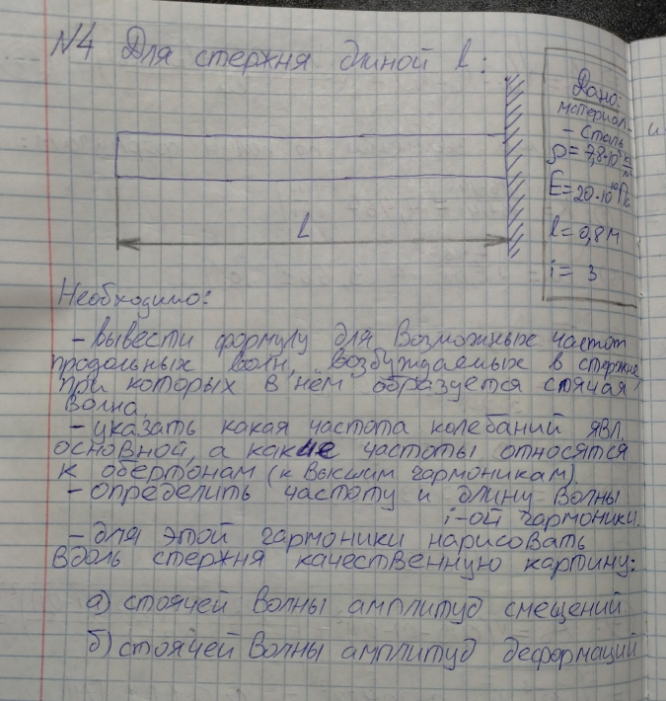 N4 Для стержня длиной l:
Дано:
материал
- сталь
ρ = 7,8·10³ кг/м
E = 20·10¹⁰ Па
l = 0,8 м
i = 3
и
L
Необходимо:
- вывести формулу для возможных частот
продольных волн, возбуждаемых в стержне,
при которых в нём образуется стоячая
волна.
- указать какая частота колебаний явл.
основной, а какие частоты относятся
к обертонам (к высшим гармоникам).
- определить частоту и длину волны
i-ой гармоники.
- для этой гармоники нарисовать
вдоль стержня качественную картину:
а) стоячей волны амплитуд смещений
б) стоячей волны амплитуд деформаций